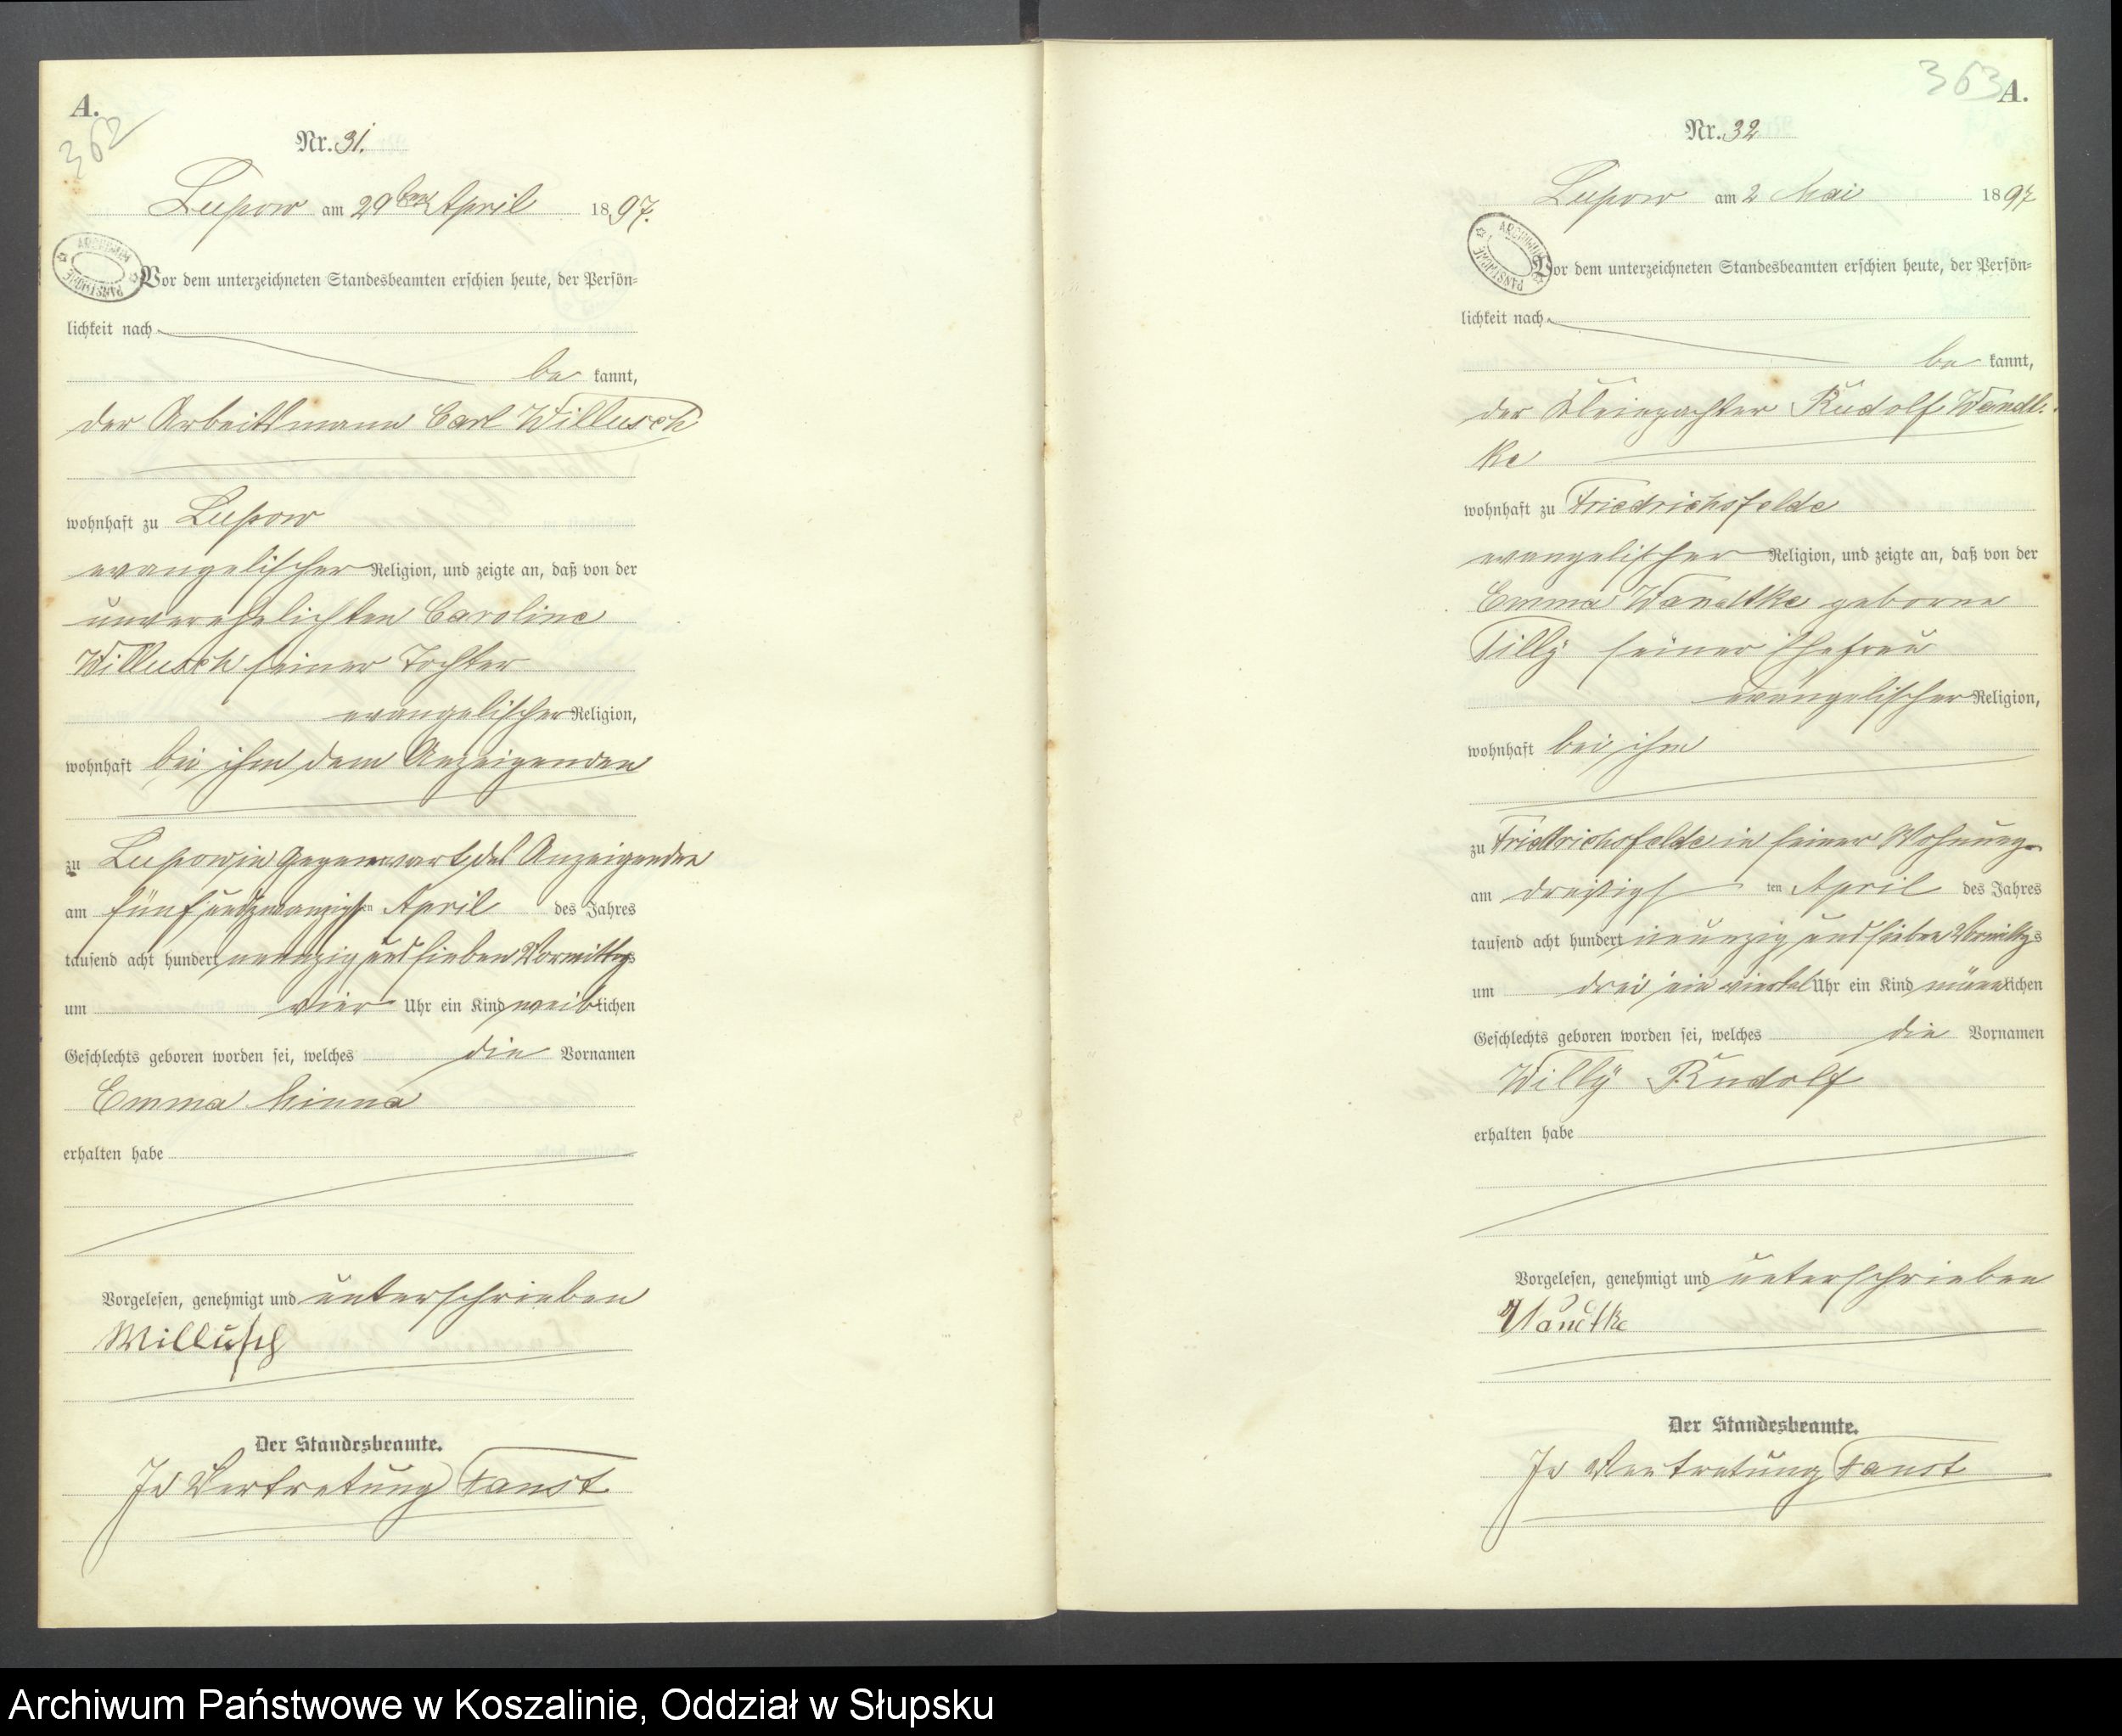 A.
362
Nr. 31.
Lupow am 29ten April 1897.
ARCHIWUM PAŃSTWOWE
Vor dem unterzeichneten Standesbeamten erschien heute, der Persön-
lichkeit nach
be kannt,
der Arbeitsmann Carl Willusch
wohnhaft zu Lupow
evangelischer Religion, und zeigte an, daß von der
unverehelichten Caroline
Willusch seiner Tochter
evangelischer Religion,
wohnhaft bei ihm dem Anzeigenden
zu Lupow in Gegenwart des Anzeigenden
am fünfundzwanzigsten April des Jahres
tausend acht hundert neunzig und sieben Vormittags
um vier Uhr ein Kind weiblichen
Geschlechts geboren worden sei, welches die Vornamen
Emma Minna
erhalten habe
Vorgelesen, genehmigt und unterschrieben
Willusch
Der Standesbeamte.
In Vertretung Faust
363
A.
Nr. 32
Lupow am 2 Mai 1897
ARCHIWUM PAŃSTWOWE
Vor dem unterzeichneten Standesbeamten erschien heute, der Persön-
lichkeit nach
be kannt,
der Kleinpachter Rudolf Wandt-
ke
wohnhaft zu Friedrichsfelde
evangelischer Religion, und zeigte an, daß von der
Emma Wandtke geborne
Tilly seiner Ehefrau
evangelischer Religion,
wohnhaft bei ihm
zu Friedrichsfelde in seiner Wohnung
am dreißigsten April des Jahres
tausend acht hundert neunzig und sieben Vormittags
um drei ein viertel Uhr ein Kind männlichen
Geschlechts geboren worden sei, welches die Vornamen
Willy Rudolf
erhalten habe
Vorgelesen, genehmigt und unterschrieben
Wandtke
Der Standesbeamte.
In Vertretung Faust
Archiwum Państwowe w Koszalinie, Oddział w Słupsku